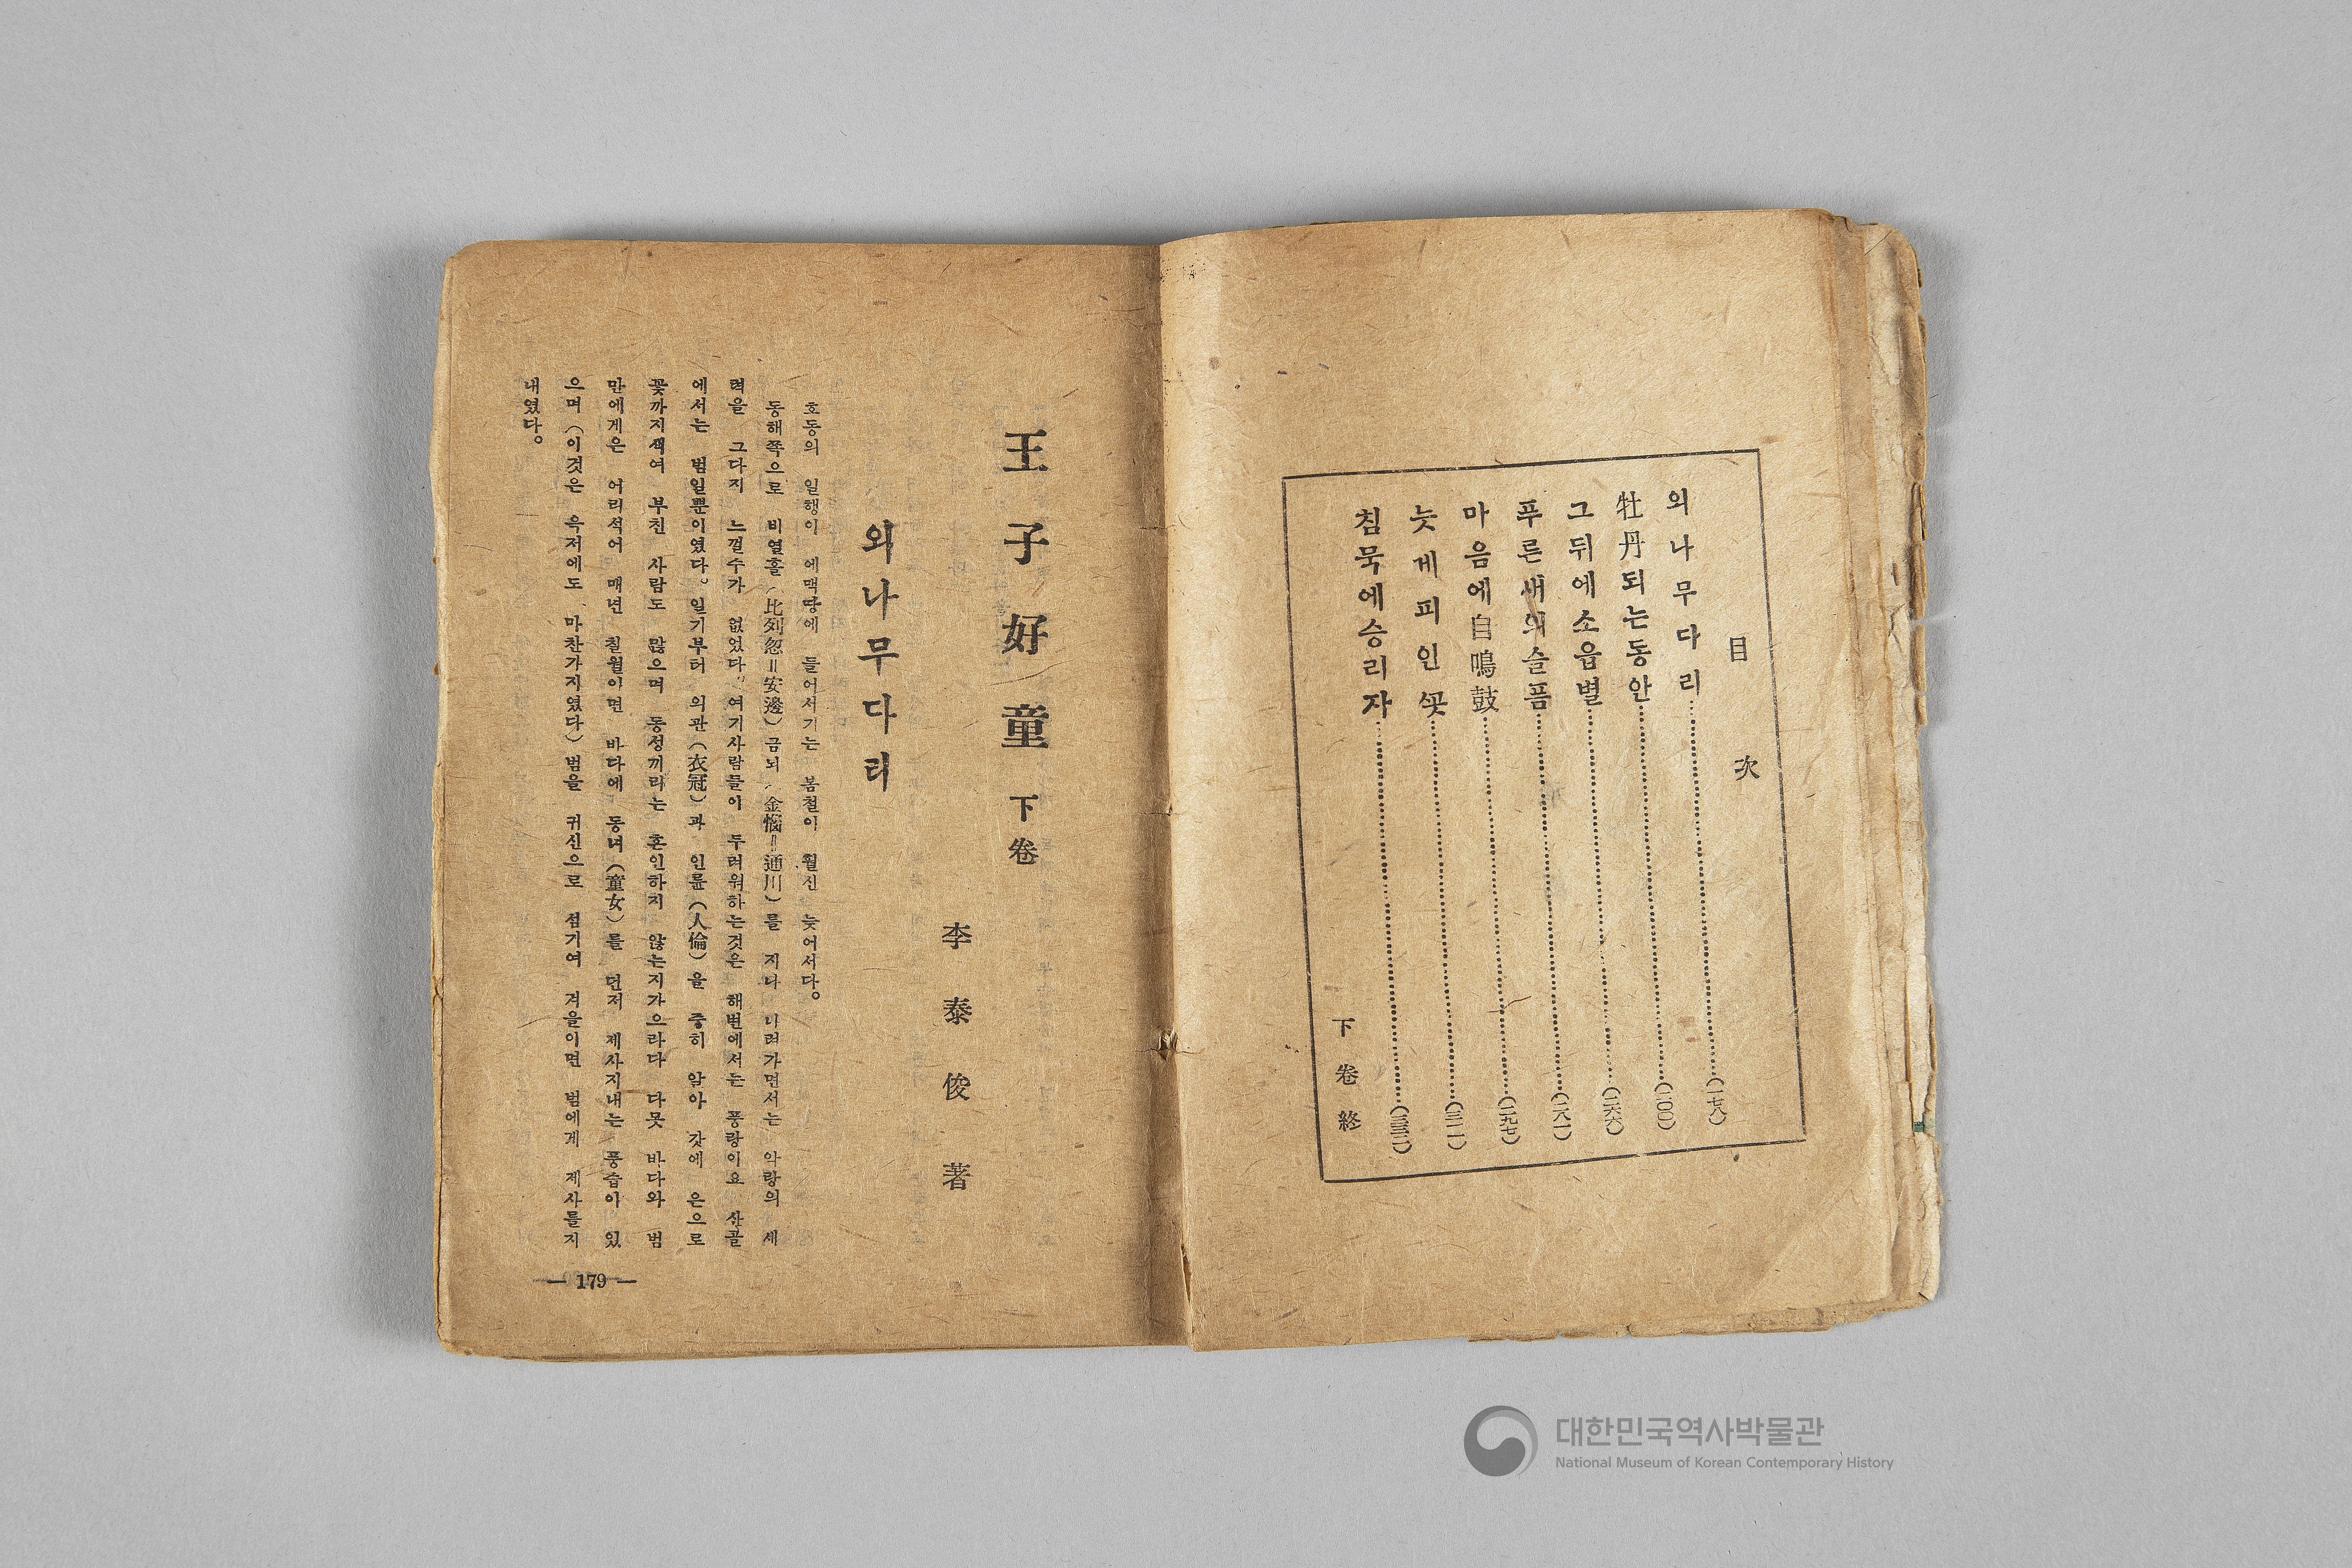 目次
외나무다리 (一七八)
牡丹되는동안 (二〇〇)
그뒤에소읍별 (二六六)
푸른새의슬픔 (二八一)
마음에自鳴鼓 (二九七)
늦게피인꽃 (三一一)
침묵에승리자 (三三二)
下卷終
王子好童 下卷
李泰俊 著
외나무다리
호동의 일행이 에맥땅에 들어서기는 봄철이 훨신 늦어서다。
동해쪽으로 비열홀(比列忽=安邊)금뇌(金惱=通川)를 지나 나려가면서는 악랑의 세
력을 그다지 느껄수가 없었다。여기사람들이 두려워하는것은 해변에서는 풍랑이요 산골
에서는 범일뿐이였다。일기부터 의관(衣冠)과 인륜(人倫)을 중히 알아 갓에 은으로
꽃까지새여 부친 사람도 많으며 동성끼리는 혼인하지 않는지가으라다 다못 바다와 범
만에게은 어리석어 매년 칠월이면 바다에 동녀(童女)를 던저 제사지내는 풍습이 있
으며(이것은 옥저에도 마찬가지였다)범을 귀신으로 섬기여 겨을이면 범에게 제사를지
내였다。
— 179 —
대한민국역사박물관
National Museum of Korean Contemporary History